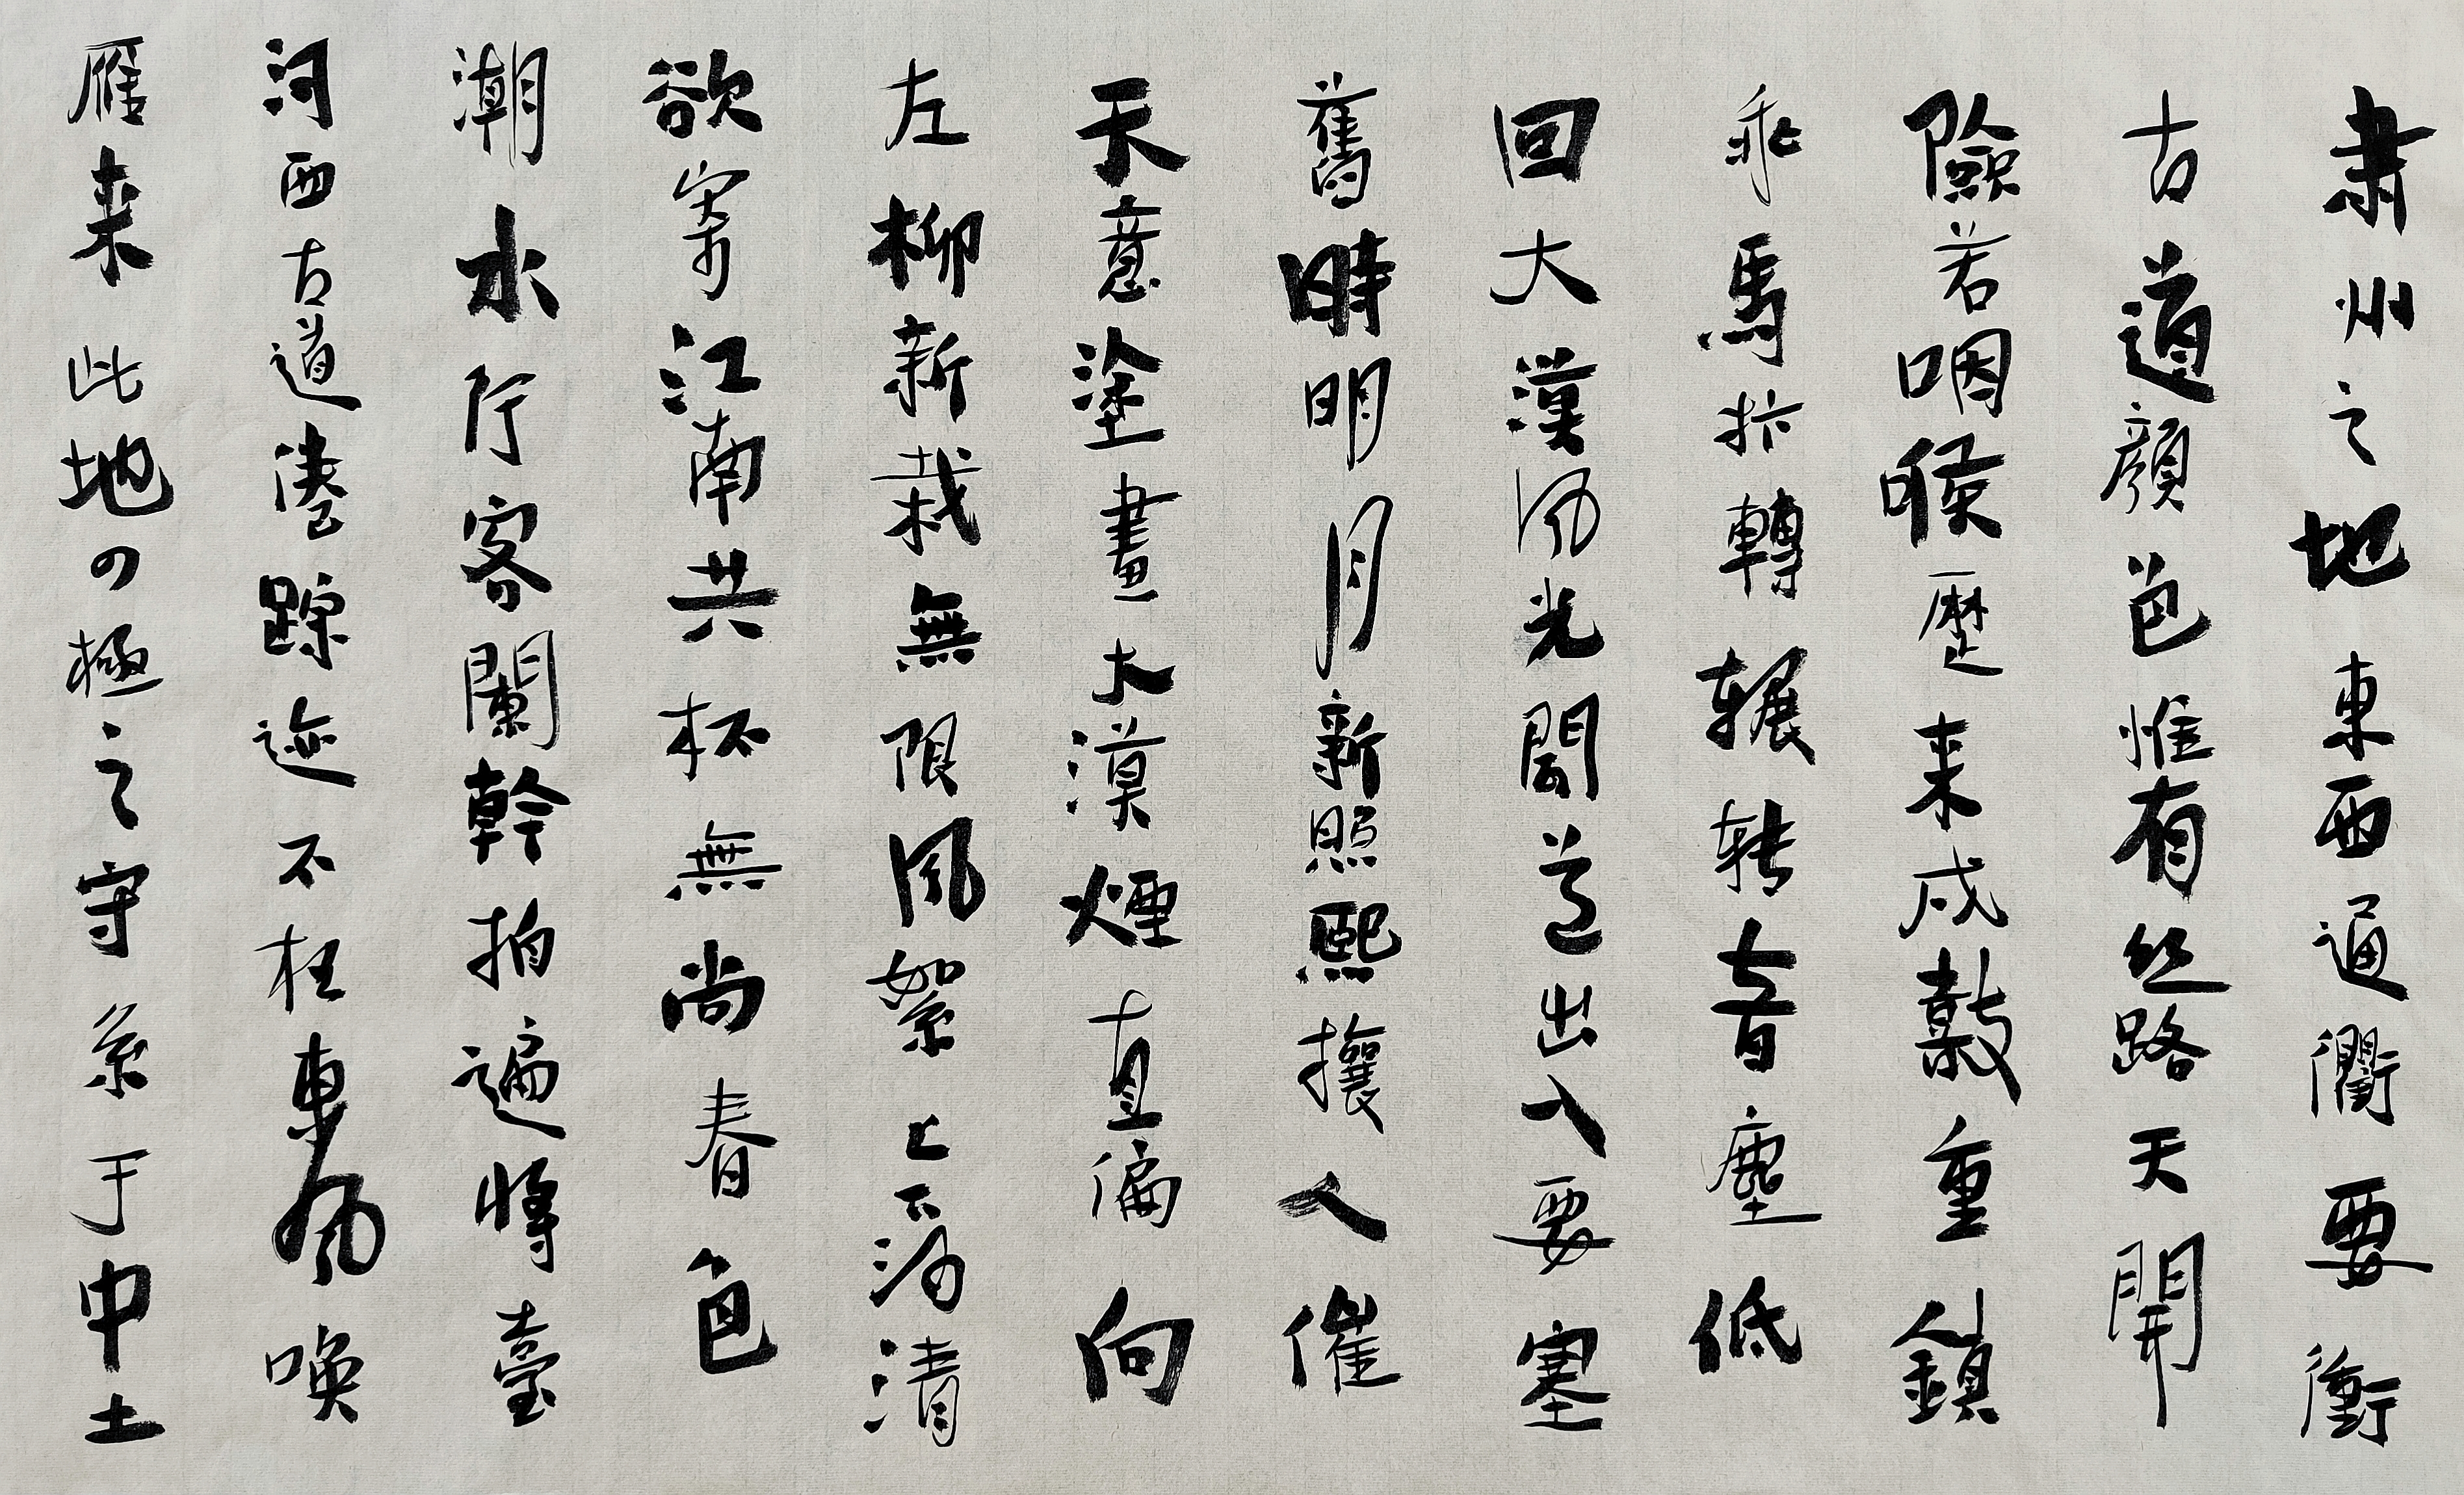 肅州之地東西通衢要衝
古道顏色惟有丝路天開
險若咽喉歷来戍鼓重鎮
乖馬旂轉辗转音塵低
回大漠风光聞道出入要塞
舊時明月新照熙攘人催
天意塗畫大漠煙直偏向
左柳新栽無限風絮上下渦清
欲寄江南共杯無尚春色
潮水佇客闌幹拍遍將臺
河西古道淹踪迹不枉東風喚
雁来此地の極之守系于中土